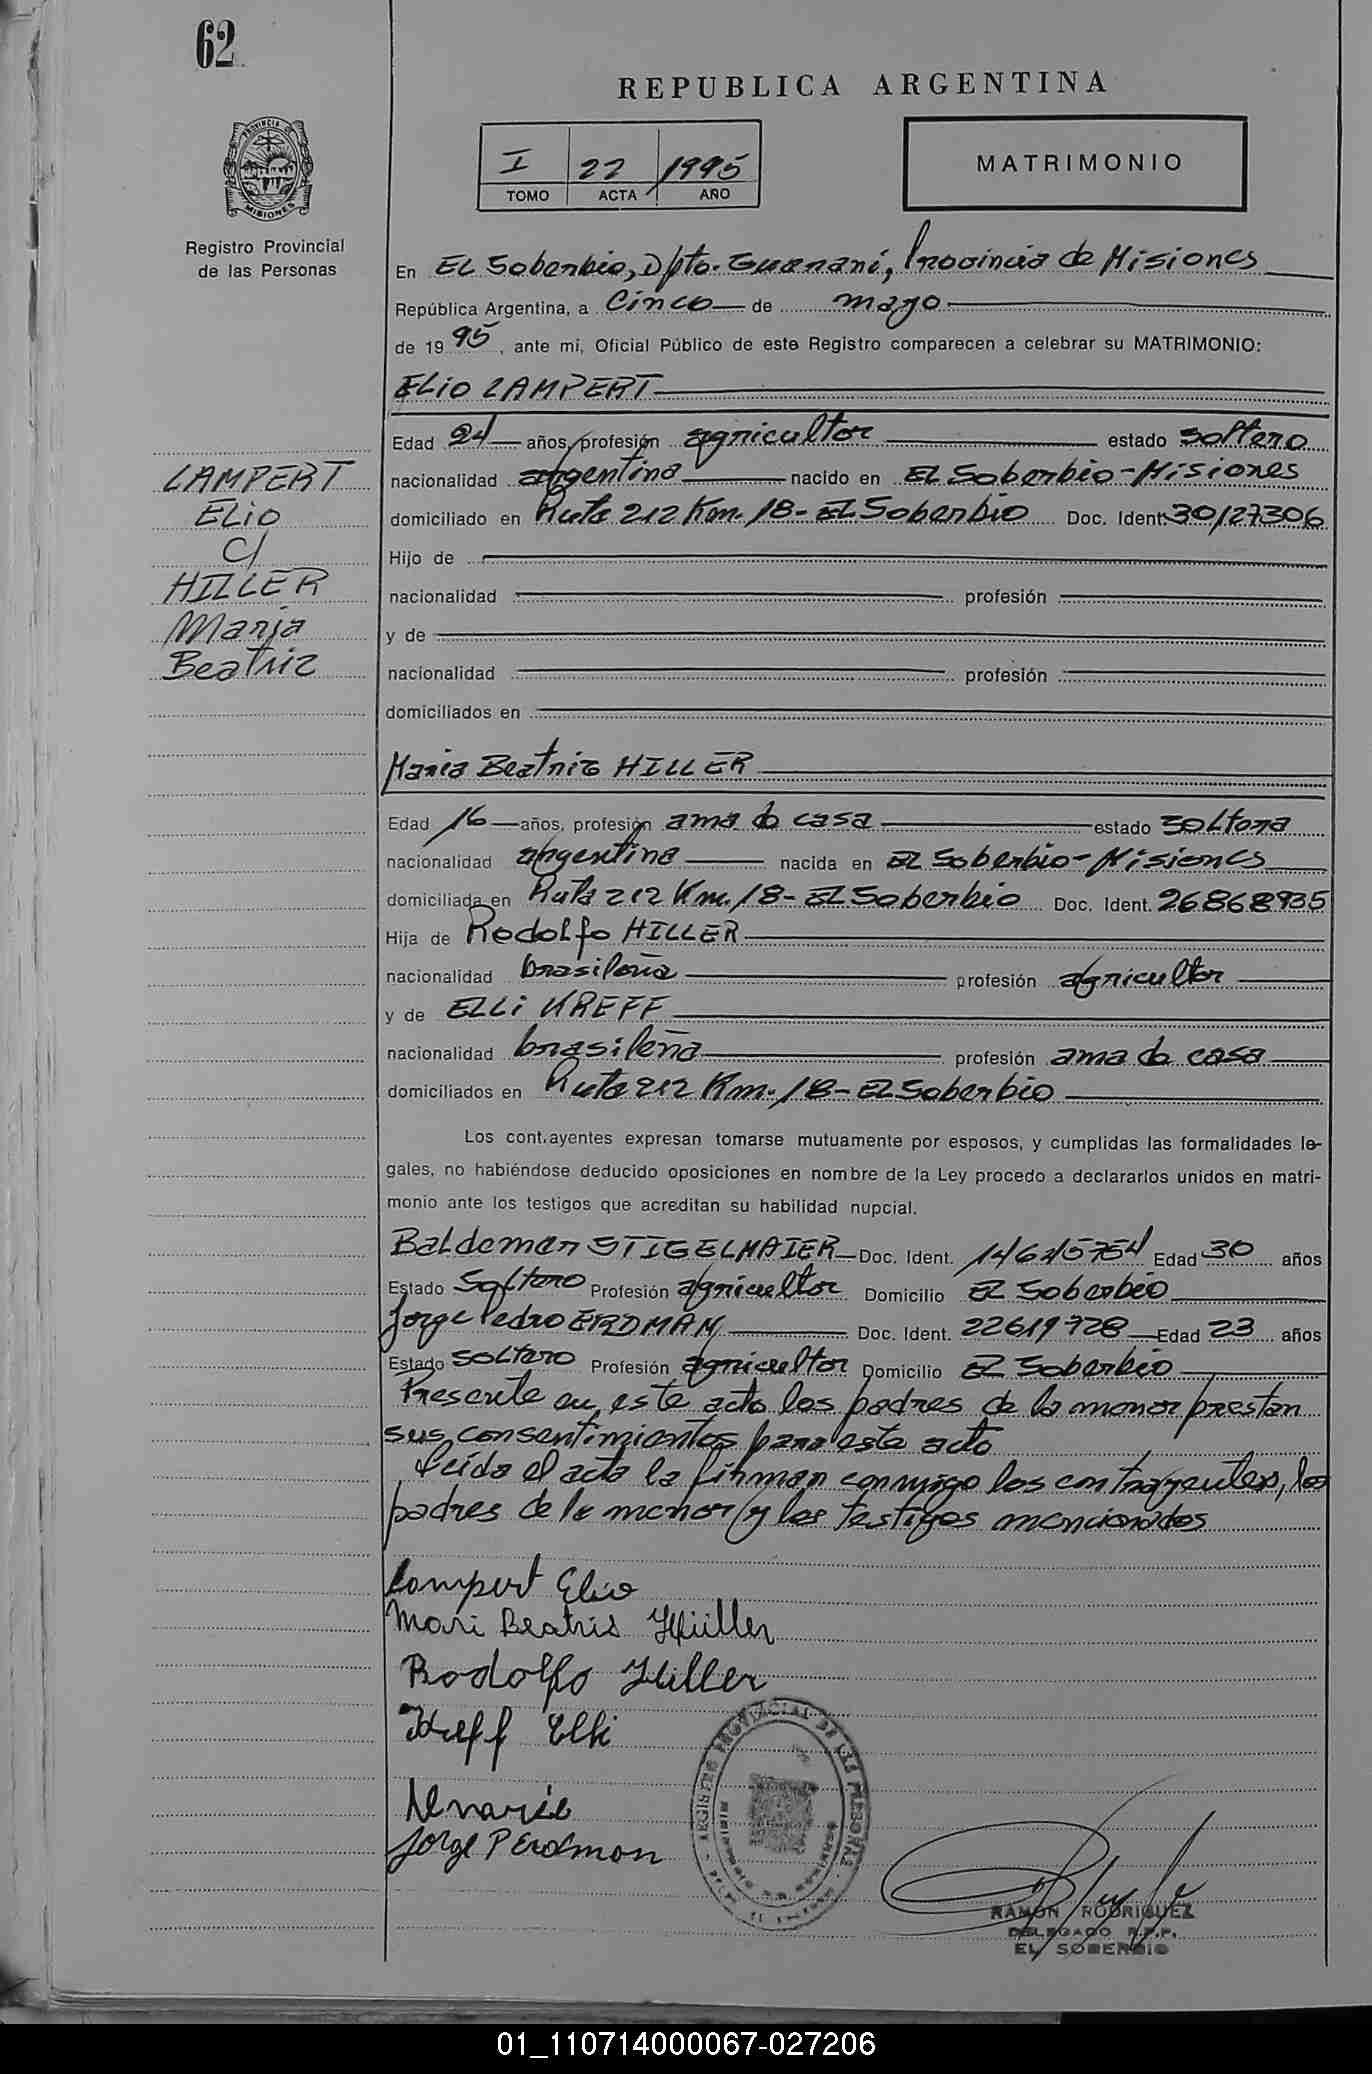 62
REPUBLICA ARGENTINA
PROVINCIA DE
MISIONES
Registro Provincial
de las Personas
I 22 1995
TOMO ACTA AÑO
MATRIMONIO
En EL Soberbio, Dpto. Guaraní, Provincia de Misiones
República Argentina, a Cinco de mayo
de 1995, ante mí, Oficial Público de este Registro comparecen a celebrar su MATRIMONIO:
ELiO LAMPERT
Edad 24 años, profesión agricultor estado soltero
nacionalidad argentina nacido en EL Soberbio-Misiones
domiciliado en Ruta 212 Km. 18-EL Soberbio Doc. Ident. 30127306
Hijo de
nacionalidad profesión
y de
nacionalidad profesión
domiciliados en
LAMPERT
ELiO
C/
HILLER
Maria
Beatriz
Maria Beatriz HILLER
Edad 16 años, profesión ama de casa estado soltera
nacionalidad argentina nacida en EL Soberbio-Misiones
domiciliada en Ruta 212 Km. 18-EL Soberbio Doc. Ident. 26868935
Hija de Rodolfo HILLER
nacionalidad brasileña profesión agricultor
y de ELLi KREFF
nacionalidad brasileña profesión ama de casa
domiciliados en Ruta 212 Km. 18-EL Soberbio
Los cont.ayentes expresan tomarse mutuamente por esposos, y cumplidas las formalidades le-
gales, no habiéndose deducido oposiciones en nombre de la Ley procedo a declararlos unidos en matri-
monio ante los testigos que acreditan su habilidad nupcial.
Baldemar STIGELMAIER Doc. Ident. Edad 30 años
Estado Soltero Profesión agricultor Domicilio EL Soberbio
Jorge Pedro ERDMAN Doc. Ident. 22619728 Edad 23 años
Estado Soltero Profesión agricultor Domicilio EL Soberbio
Presente en este acto los padres de la menor prestan
sus consentimientos para este acto
Leída el acta la firman conmigo los contrayentes, los
padres de la menor y los testigos mencionados
Lampert Elio
Mari Beatris Hüller
Rodolfo Hiller
Kreff Elli
Jorge P Erdman
REGISTRO PROVINCIAL DE LAS PERSONAS
RAMON RODRIGUEZ
DELEGADO R.P.P.
EL SOBERBIO
01_110714000067-027206